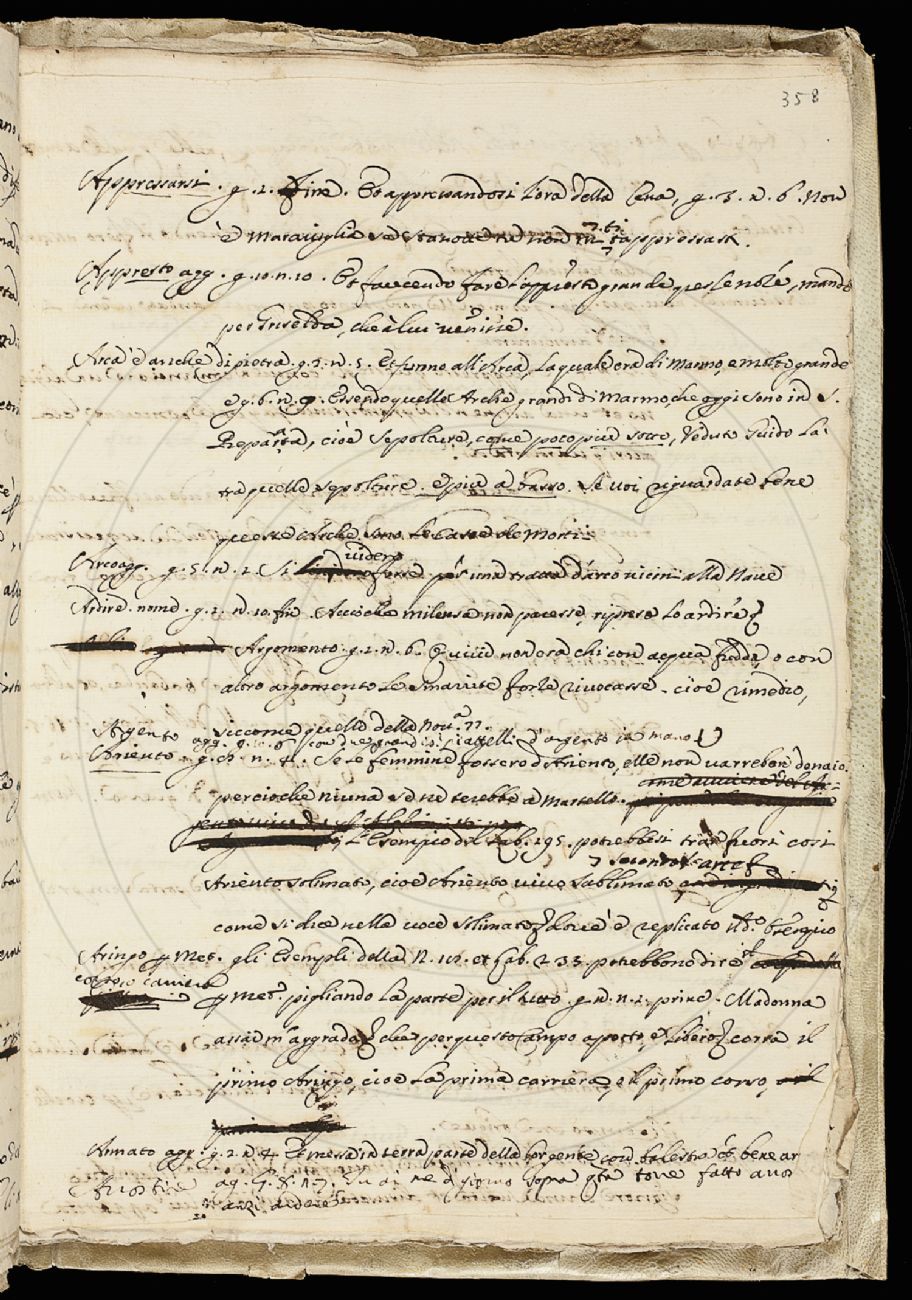 358
Appressarsi. g. 2. fine. Et appressandosi l'ora della Cena, g. 3. n. 6. Non
è maraviglia se stanotte tu non mi ti appressasti.
Appresto agg. g. 10. n. 10. Et faccendo fare l'appresto grande per le nozze, mandò
per Griselda, che a lui venisse.
Arca è anche di pietra. g. 2. n. 5. Et furono all'Arca, la quale era di marmo, e molto grande
e g. 6. n. 9. Essendo quelle Arche grandi di Marmo, che oggi sono in S.
Reparata, cioè Sepolture, come poco più sotto, Veduto Guido là
tra quelle sepolture. e più a basso. Se voi riguardate bene
queste Arche sono le case de morti:
Arco agg. g. 5. n. 2. Si videro forse per una tratta d'arco vicini alla Nave
Ardire. nome. g. 2. n. 10. fine Acciocché milensa non paresse, riprese lo ardire
Argomento. g. 2. n. 6. E quivi non era chi con acqua fredda, o con
altro argomento le smarrite forze rivocasse. cioè rimedio,
siccome quello della Nov.a 77.
Argento agg. g. 10. 6 con due grandissimi piattelli d'argento in mano
Ariento g. 8. n. 4. Se le femmine fossero d'Ariento, elle non varrebbon denaio.
perciocché niuna se ne terebbe a martello.
L'Esempio di Lab. 195. potrebbesi trar fuori così
secondo l'arte
Ariento solimato, cioè Ariento vivo sublimato
come si dice nella voce Solimato dove è replicato il d.o Esempio
Aringo p met. gli Esempli della N. 10. et Lab. 233. potrebbono dire
corso o carriera p met. pigliando la parte per il tutto. g. n. n. 2. prine. Madonna
assai m'aggrada che per questo campo aperto, e libero corra il
primo Aringo, cioè la prima carriera, e il primo corso,
Armato agg. g. 2. n. 4. Et messa in terra parte della lor gente con balestra et bene ar
Arrostire ag. G. 8. n. 7.
anzi ardere